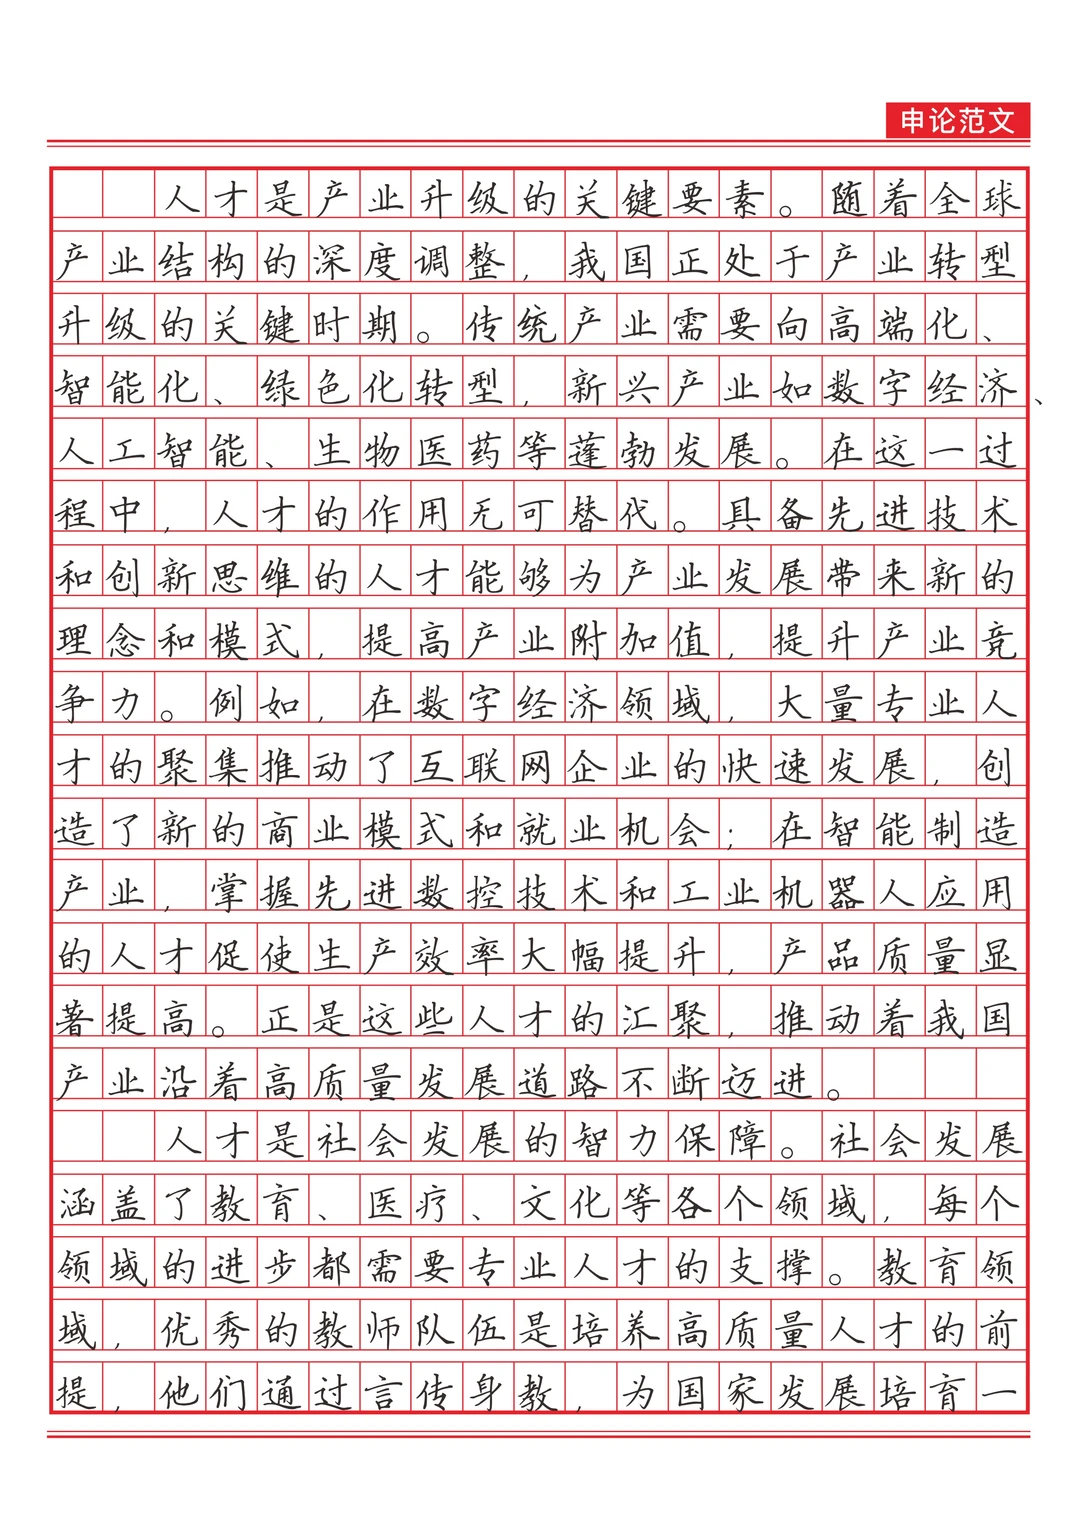 申论范文
人才是产业升级的关键要素。随着全球
产业结构的深度调整，我国正处于产业转型
升级的关键时期。传统产业需要向高端化、
智能化、绿色化转型，新兴产业如数字经济、
人工智能、生物医药等蓬勃发展。在这一过
程中，人才的作用无可替代。具备先进技术
和创新思维的人才能够为产业发展带来新的
理念和模式，提高产业附加值，提升产业竞
争力。例如，在数字经济领域，大量专业人
才的聚集推动了互联网企业的快速发展，创
造了新的商业模式和就业机会；在智能制造
产业，掌握先进数控技术和工业机器人应用
的人才促使生产效率大幅提升，产品质量显
著提高。正是这些人才的汇聚，推动着我国
产业沿着高质量发展道路不断迈进。
人才是社会发展的智力保障。社会发展
涵盖了教育、医疗、文化等各个领域，每个
领域的进步都需要专业人才的支撑。教育领
域，优秀的教师队伍是培养高质量人才的前
提，他们通过言传身教，为国家发展培育一